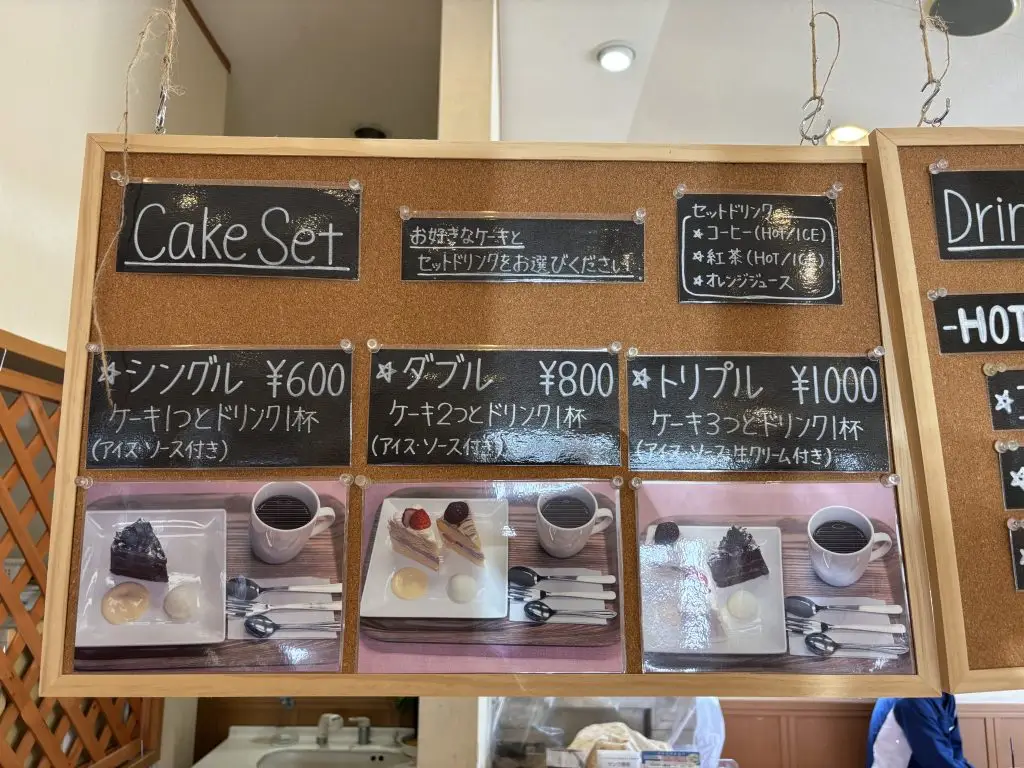 Cake Set
お好きなケーキと
セットドリンクをお選びください
セットドリンク
★コーヒー(HOT/ICE)
★紅茶(HOT/ICE)
★オレンジジュース
★シングル ¥600
ケーキ1つとドリンク1杯
(アイス・ソース付き)
★ダブル ¥800
ケーキ2つとドリンク1杯
(アイス・ソース付き)
★トリプル ¥1000
ケーキ3つとドリンク1杯
(アイス・ソース・生クリーム付き)
Drin
-HOT